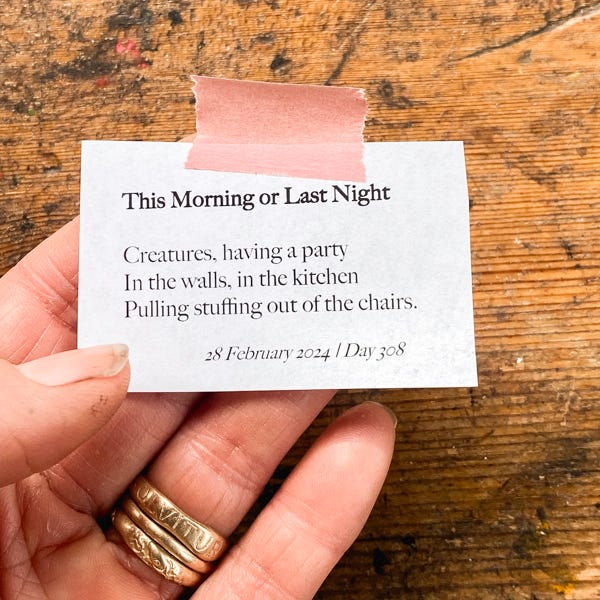 This Morning or Last Night
Creatures, having a party
In the walls, in the kitchen
Pulling stuffing out of the chairs.
28 February 2024 | Day 308